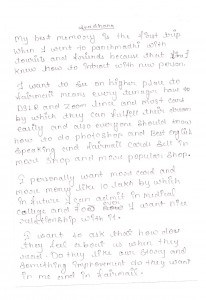 Aradhana
My best memory is the first trip
when I went to panchmadhi with
tourist and friends because that time I
knew how to intract with new person
I want to be on higher place to
fairmail many every dunger have
DSLR and zoom lens and most card
by which they can fulfill this dream
easily and also everyone should know
how to do photoshop and best english
speaking and fairmail cards sell in
more shop and more popular shop.
I personally want more card and
more money like 10 lakh by which
in future I can admit in medical
college and too I want nice
relationship with it.
I want to ask that how does
they feel about us when they
read. Do they like our story and
something improvement do they want
in me and in fairmail.